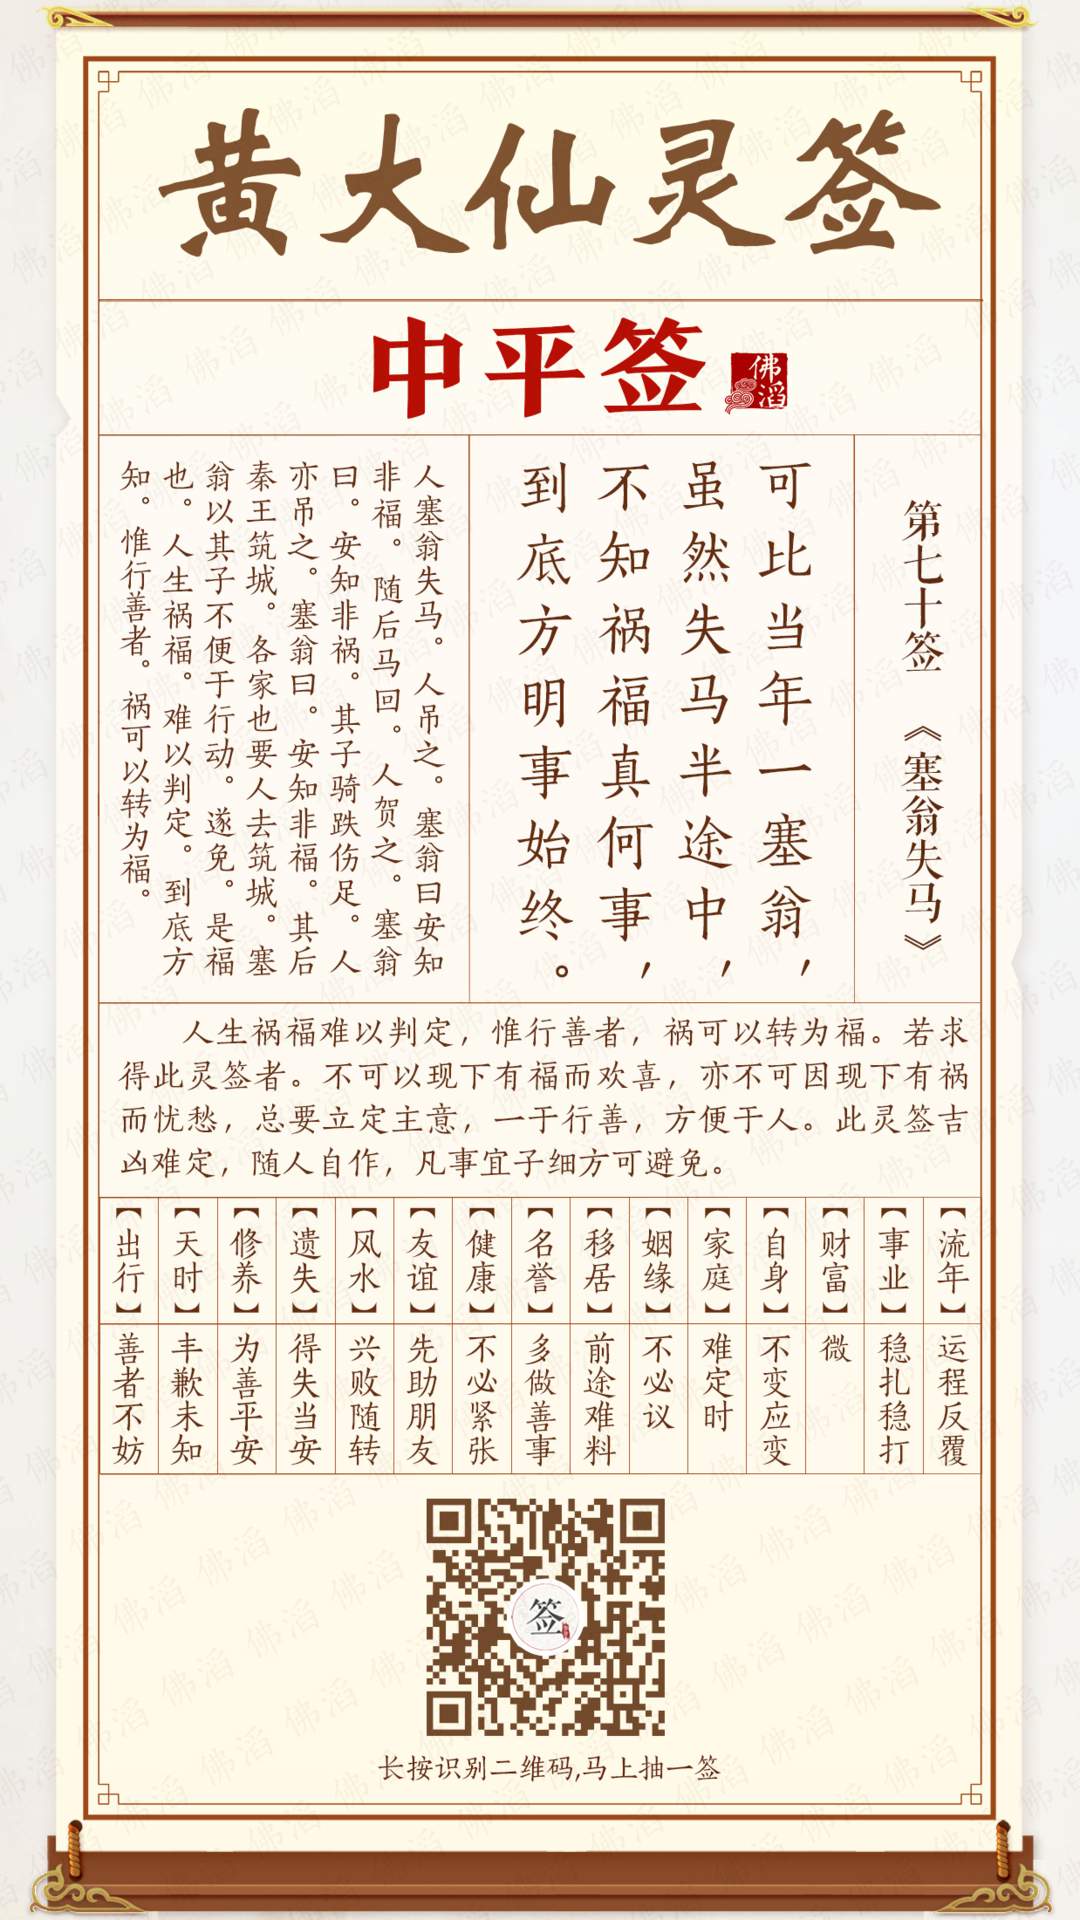 黄大仙灵签
中平签
佛滔
第七十签 《塞翁失马》
可比当年一塞翁，
虽然失马半途中，
不知祸福真何事，
到底方明事始终。
人塞翁失马。人吊之。塞翁曰安知
非福。随后马回。人贺之。塞翁
曰。安知非祸。其子骑跌伤足。人
亦吊之。塞翁曰。安知非福。其后
秦王筑城。各家也要人去筑城。塞
翁以其子不便于行动。遂免。是福
也。人生祸福。难以判定。到底方
知。惟行善者。祸可以转为福。
人生祸福难以判定，惟行善者，祸可以转为福。若求
得此灵签者。不可以现下有福而欢喜，亦不可因现下有祸
而忧愁，总要立定主意，一于行善，方便于人。此灵签吉
凶难定，随人自作，凡事宜子细方可避免。
【流年】运程反覆
【事业】稳扎稳打
【财富】微
【自身】不变应变
【家庭】难定时
【姻缘】不必议
【移居】前途难料
【名誉】多做善事
【健康】不必紧张
【友谊】先助朋友
【风水】兴败随转
【遗失】得失当安
【修养】为善平安
【天时】丰歉未知
【出行】善者不妨
签
长按识别二维码,马上抽一签